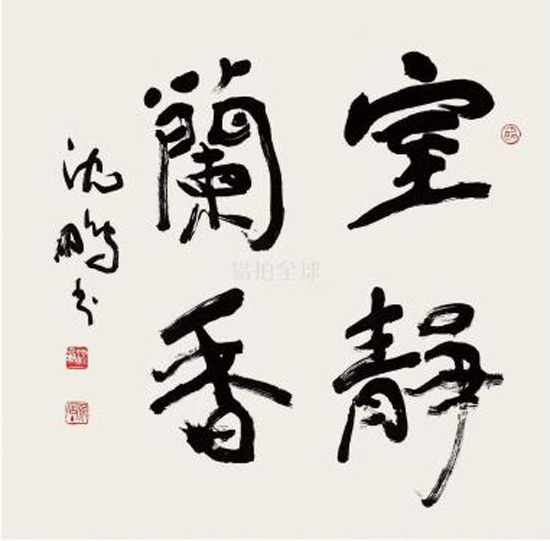 室靜
蘭香
沈鵬书
易拍全球